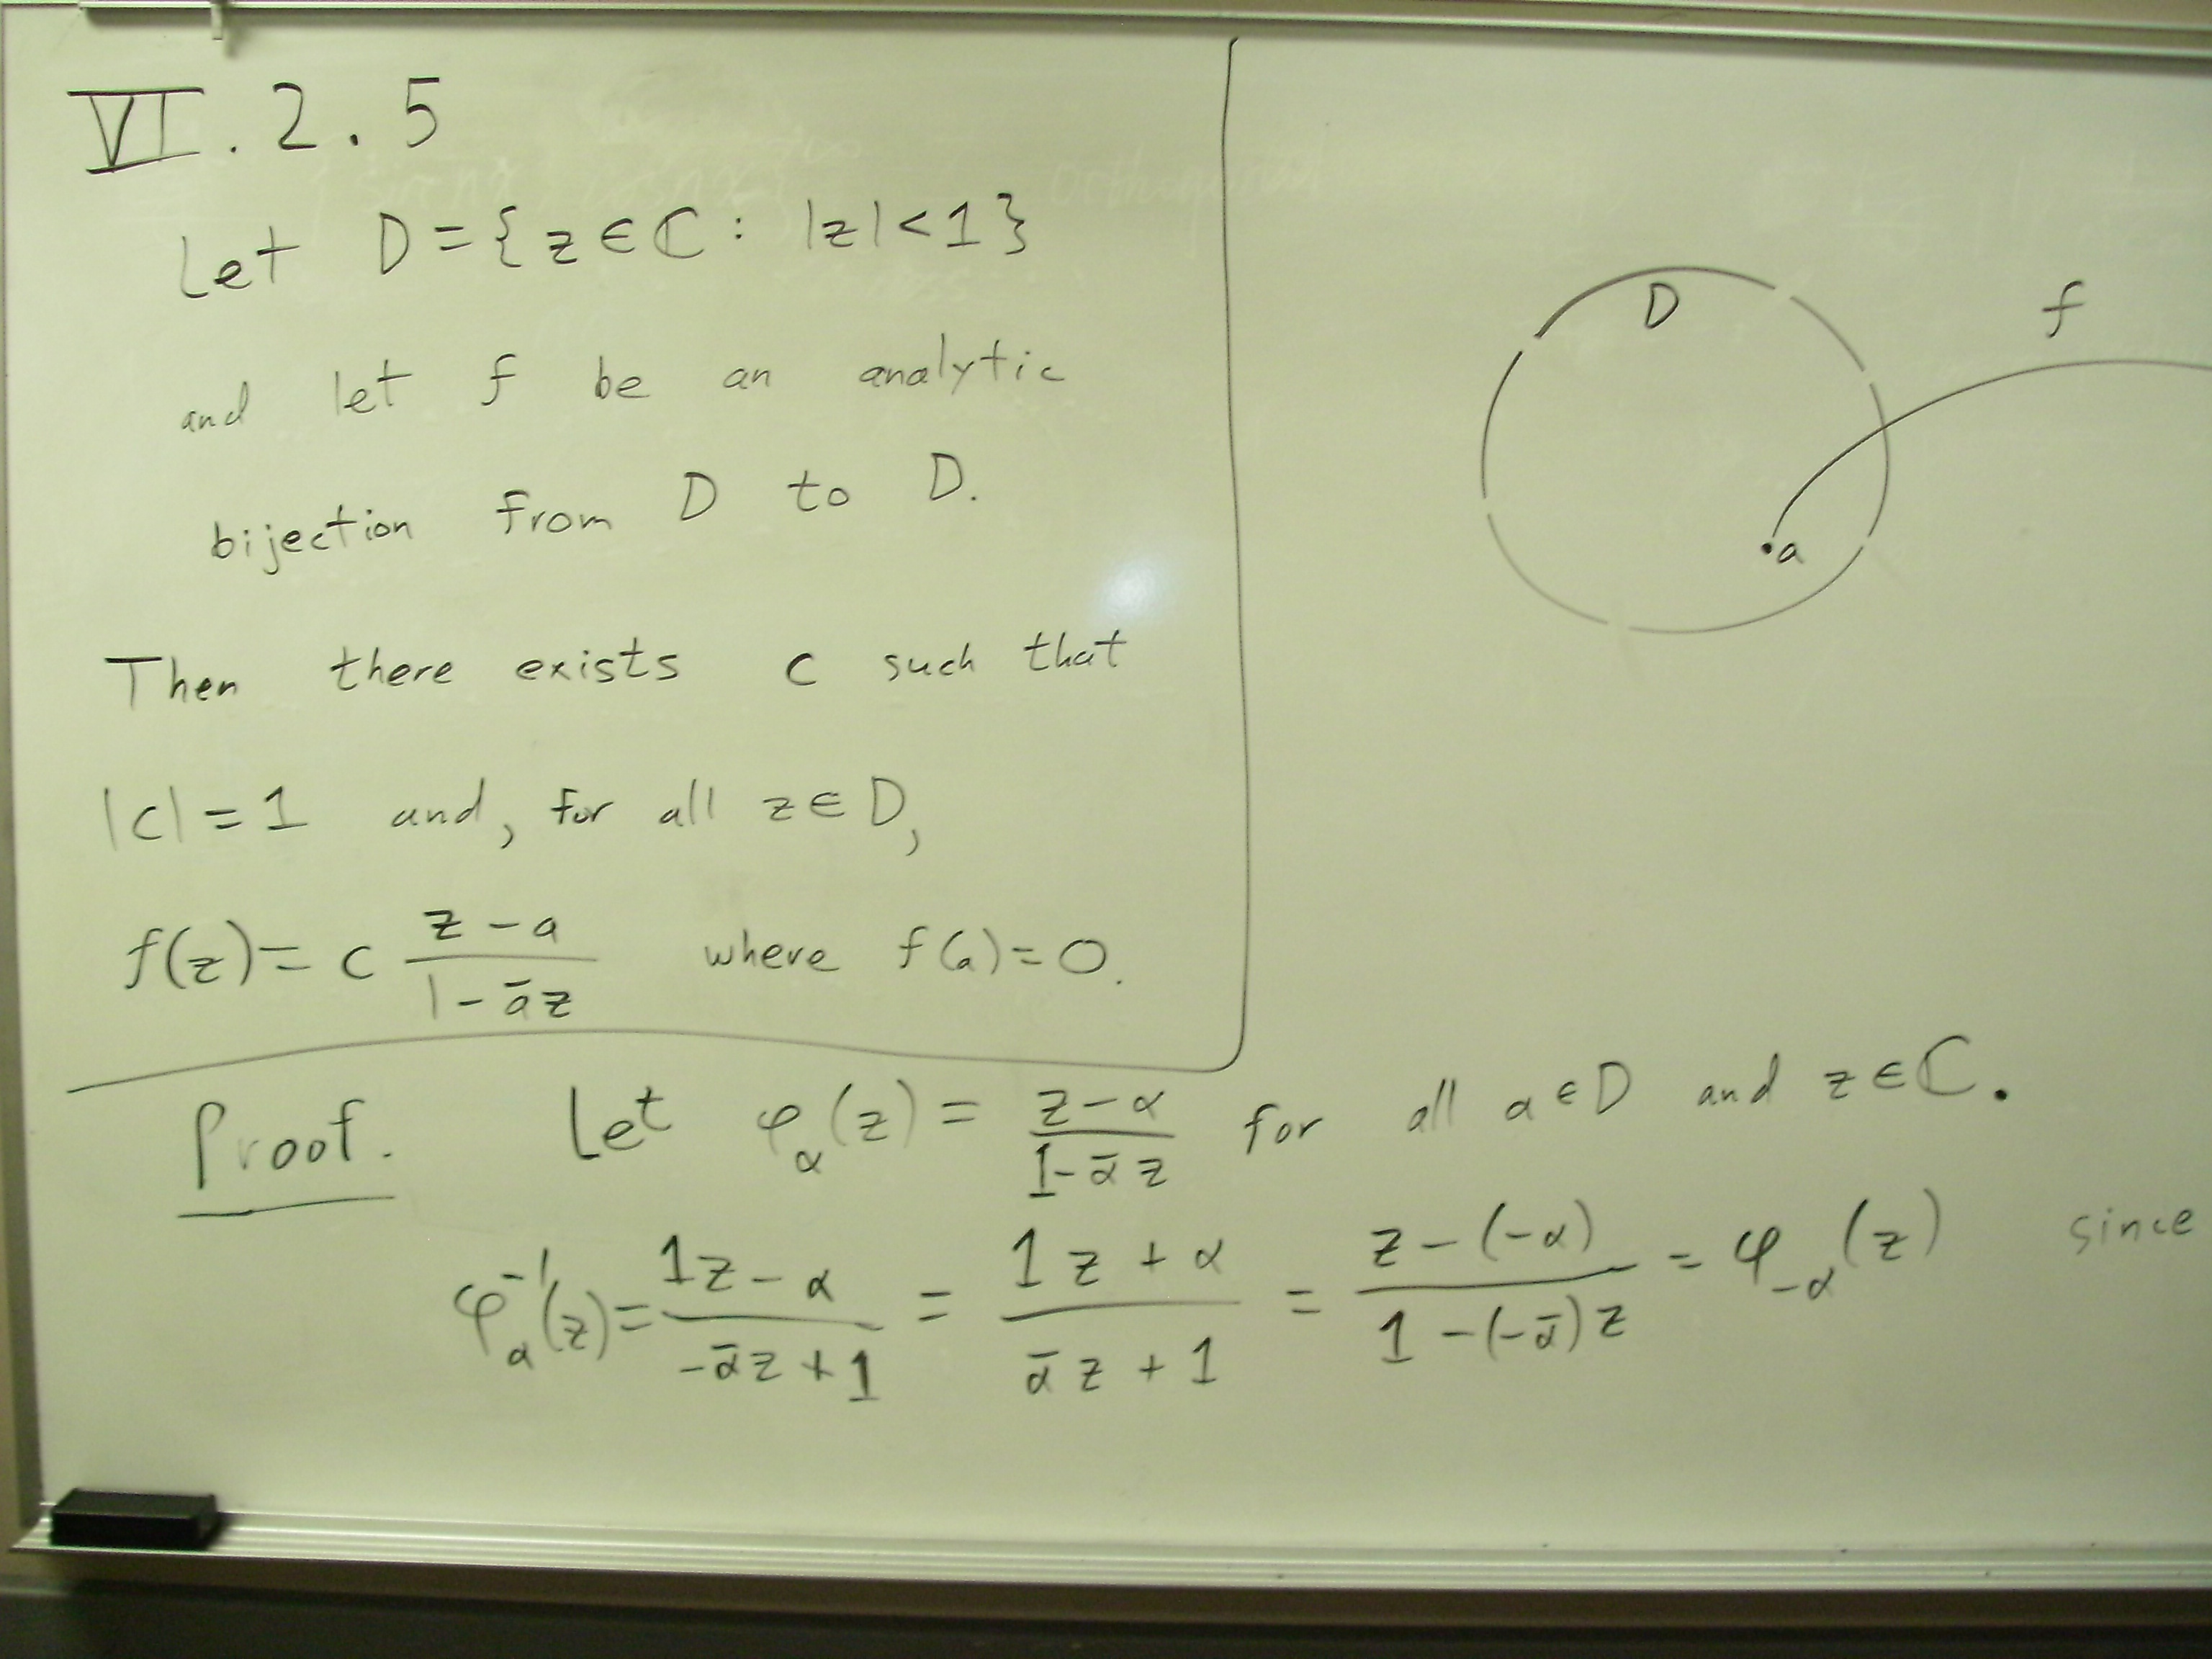 VI.2.5
Let D = {z ∈ ℂ : |z| < 1}
and let f be an analytic
bijection from D to D.
Then there exists c such that
|c| = 1 and, for all z ∈ D,
f(z) = c (z - a)/(1 - āz) where f(a) = 0.
D
f
a
Proof. Let φ_α(z) = (z - α)/(1 - ᾱz) for all α ∈ D and z ∈ ℂ.
φ_α^{-1}(z) = (1z - α)/(-ᾱz + 1) = (1z + α)/(ᾱz + 1) = (z - (-α))/(1 - (-ᾱ)z) = φ_{-α}(z) since